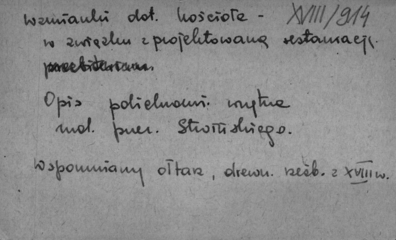 wzmianki dot. kościoła - XVIII/914
w związku z projektowaną restauracją
Opis polichromii. wnętrza
mal. przez Stroińskiego.
Wspomniany ołtarz, drewn. rzeźb. z XVIII w.